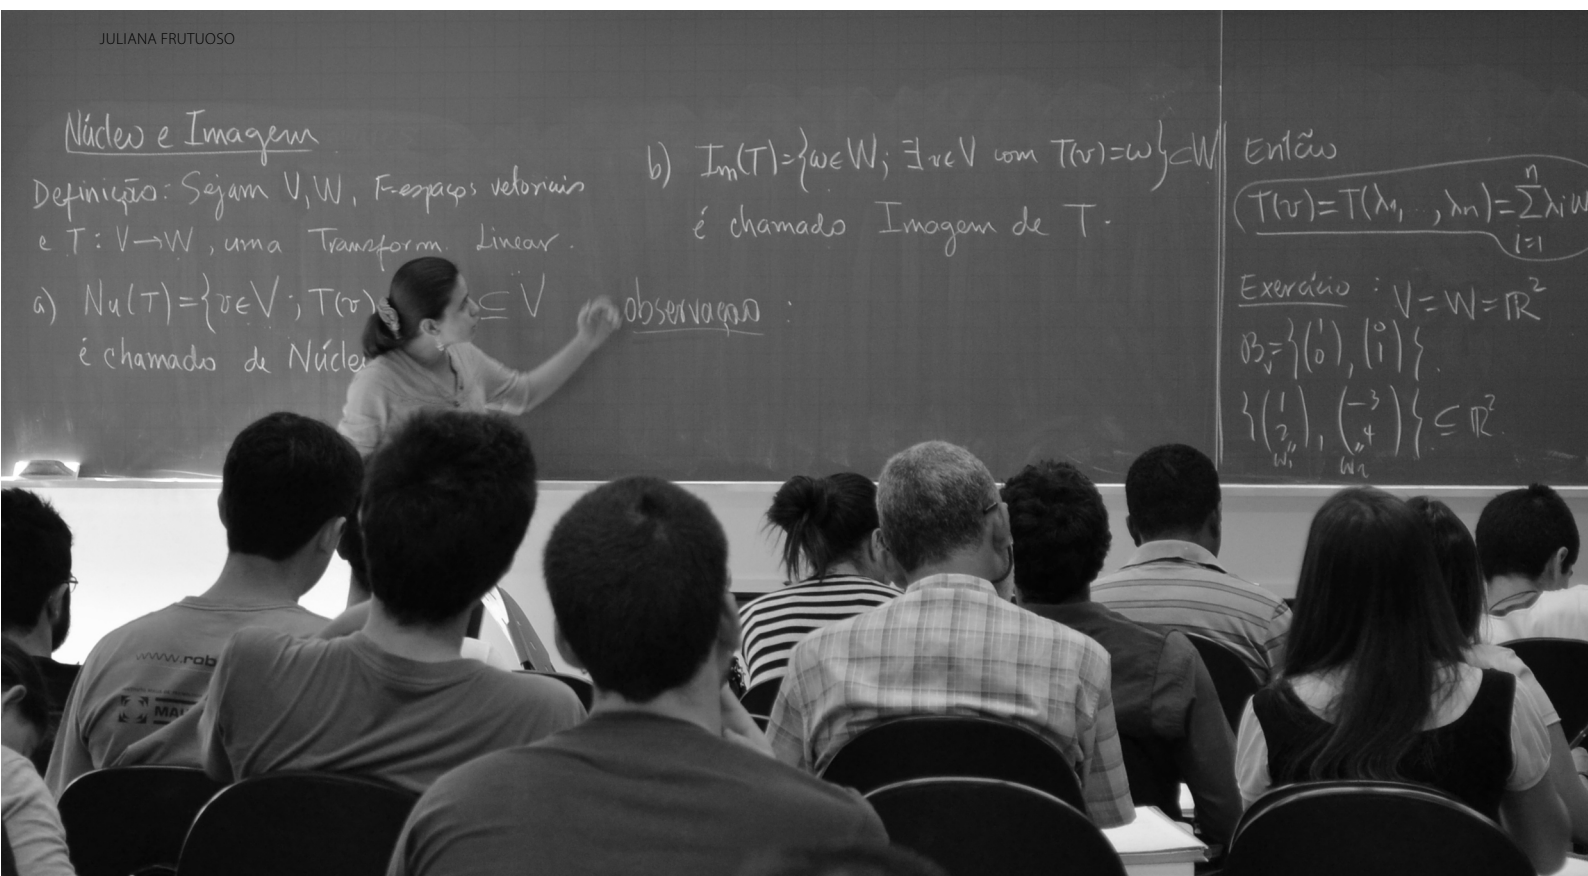 JULIANA FRUTUOSO
Núcleo e Imagem
Definição: Sejam V, W, F-espaços vetoriais
e T: V→W, uma Transform. Linear.
a) Nu(T)={v∈V; T(v) ⊆ V
é chamado de Núcle
b) Im(T)={ω∈W; ∃v∈V com T(v)=ω}⊂W
é chamado Imagem de T.
observaçao :
Então
T(v)=T(λ1, .., λn)=∑ λi w
n
i=1
Exercício : V=W=ℝ²
B={(1 0), (0 1)}.
{(1 2), (-3 4)} ⊆ ℝ².
w1 w2
www.rob
MAU